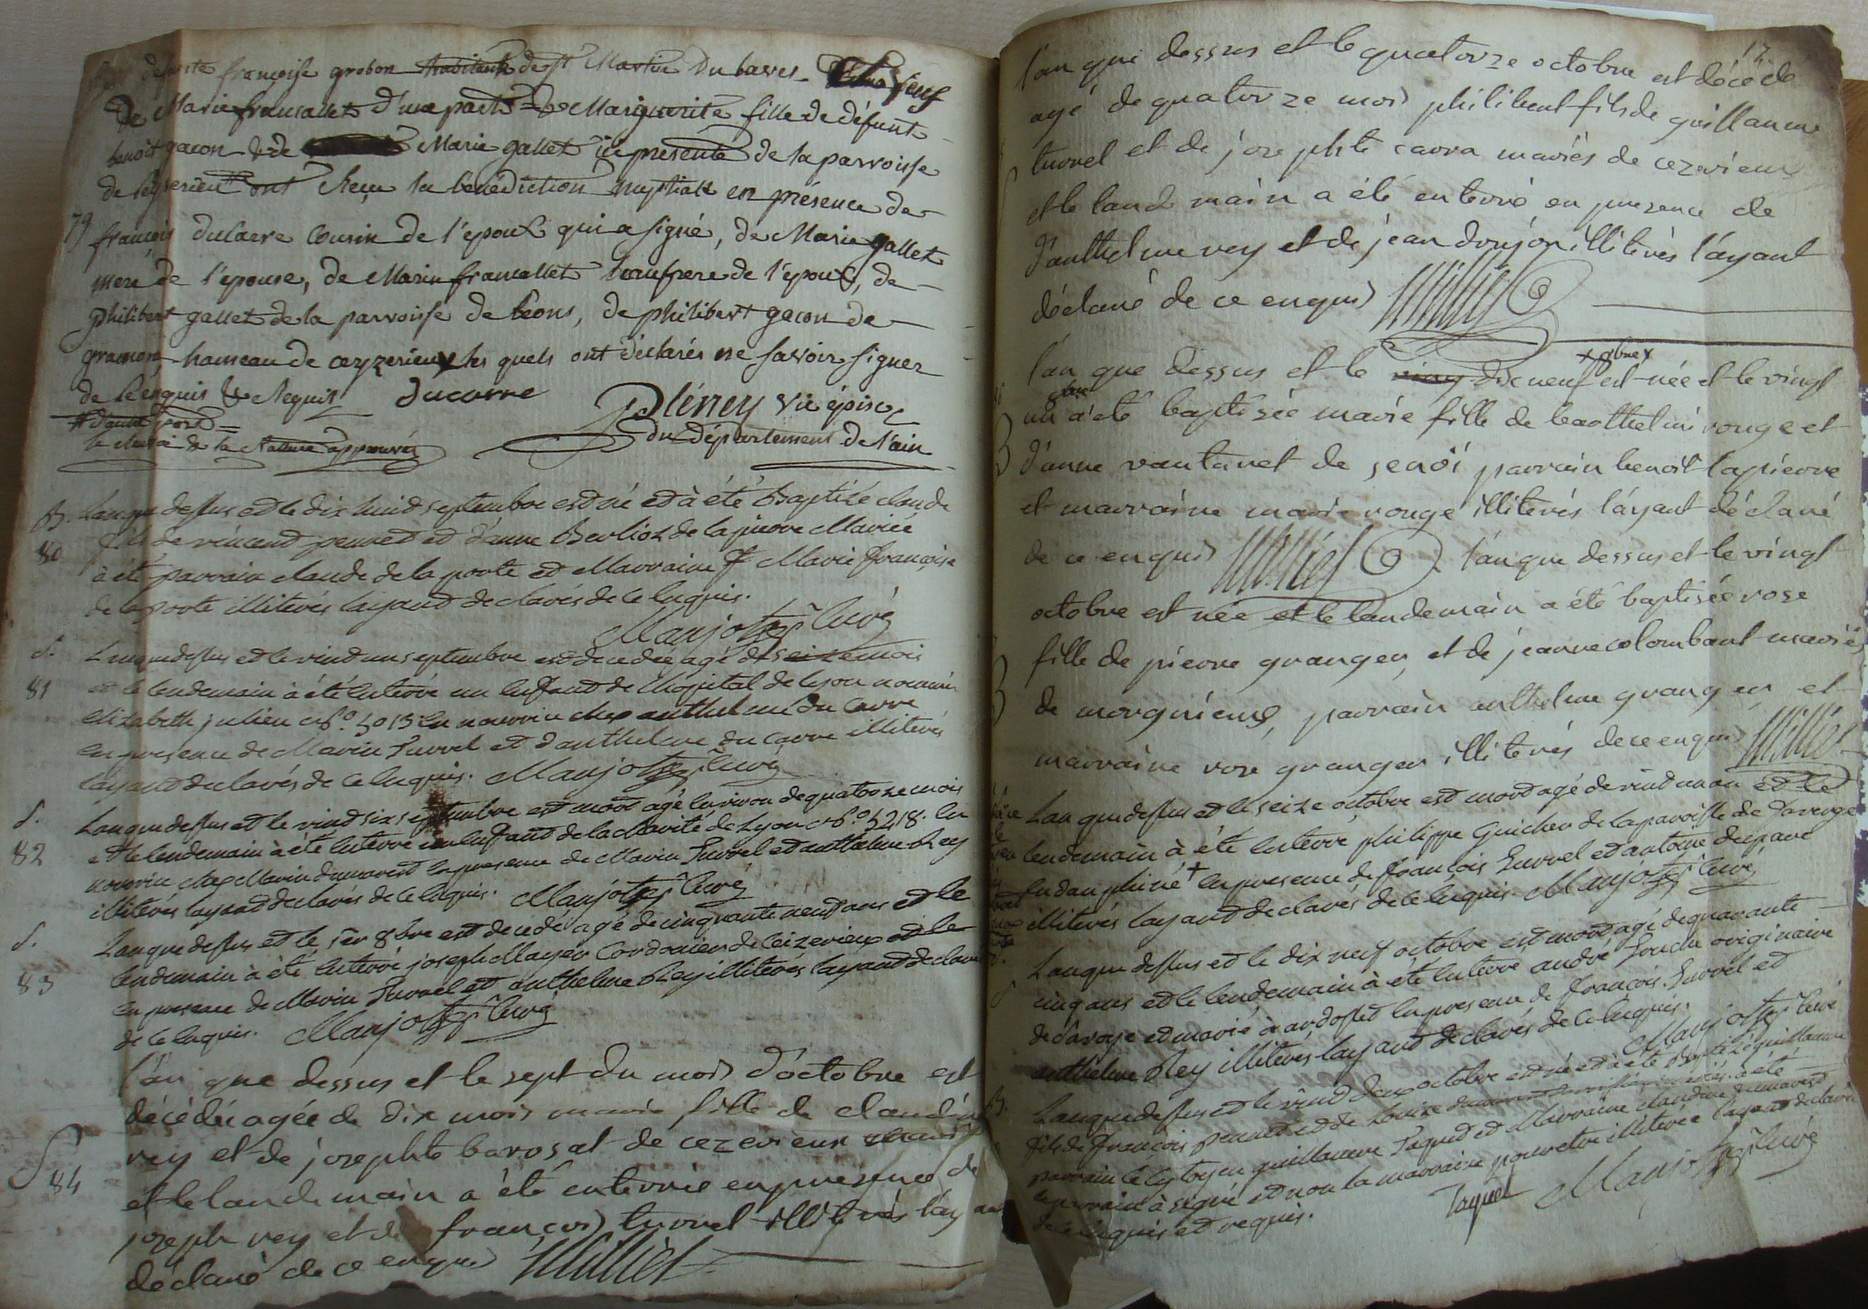 defunte françoise grobon habitants de st Martin Du bares
de Marin francallet d'une part & Marguerite fille de défunt
benoit gacon & de Marie gallet ici présente de la parroisse
de ont Reçu la bénédiction nuptiale en présence de
79 françois ducarre Cousin de l'epoux qui a signé, de Marie gallet
mere de l'épouse, de Marin francallet beaufrere de l'époux, de
philibert gallet de la parroisse de béons, de philibert gacon de
gramon hameau de ceyzerieux les quels ont déclarés ne savoir signer
de Ce enquis & Requis ducarre
# d'autre part
la de la Rature approuvée
du département de l'ain
B. L'an que dessus et le dix huit septembre est né et à été Baptizé claude
80 fils de vincent pennet et d'anne Berlioz de la pierre Mariée
à été parrain claude de la porte et Marraine Marie françoise
de la porte illiterés layant declarés de ce Enquis.
Manjot curé
S. L'an que dessus et le vind un septembre est decedée agé de seize mois
81 et le lendemain à été Enterré un Enffant de l'hopital de Lyon nommée
elizabeth julien n° 5013 En nourrice chez anthelme du Carre
En presence de Marin Turrel et d'anthelme du carre illiterés
layant declarés de ce Enquis. Manjot curé
S. L'an que dessus et le vind six septembre est mort agé Environ de quatorze mois
82 et le lendemain à été Enterré un Enffant de la charité de Lyon n° 5218. En
nourrice chez Marin dumarest En presence de Marin Turrel et anthelme Rey
illiterés layant declarés de ce Enquis. Manjot curé
S. L'an que dessus et le 1er 8bre est decedé agé de cinquante neuf ans et le
83 lendemain à été Enterré joseph Mayer Cordonier de Ceizerieux
En presence de Marin Turrel et anthelme Rey illiterés layant declaré
de ce Enquis. Manjot curé
l'an que dessus et le sept du mois d'octobre est
décédée agée de dix mois marie fille de claude
rey et de josephte barosat de cezerieux
S 84 et le lendemain a été enterrée en presence de
joseph rey et de françois turrel illiterés l'ayant
déclaré de ce enquis Milliet
17
l'an que dessus et le quatorze octobre est décédé
agé de quatorze mois philibert fils de guillaume
turrel et de josephte carra mariés de cezerieux
et le landemain a été enterré en presence de
d'anthelme rey et de jean donjon illiterés l'ayant
déclaré de ce enquis Milliet
l'an que dessus et le dix neuf est née et le vingt
un a été baptisée marie fille de barthelmi rouge et
d'anne vautaret de senoi parrain benoit lapierre
et marraine marie rouge illiterés l'ayant déclaré
de ce enquis Milliet l'an que dessus et le vingt
octobre est née et le lendemain a été baptisée rose
fille de pierre granger, et de jeanne colombant mariés
de morgnieux, parrain anthelme granger et
marraine rose granger illiterés de ce enquis Milliet
L'an que dessus et le seize octobre est mort agé de vind un an et le
lendemain à été Enterré philippe Guicher de la paroisse de
En dauphiné + En presence de françois Turrel et antoine
illiterés layant declarés de ce Enquis Manjot curé
L'an que dessus et le dix neuf octobre est mort agé de quarante
cinq ans et le lendemain à été Enterré andré originaire
de savoye et marié à ardosset En presence de françois Turrel et
anthelme Rey illiterés layant declarés de ce Enquis.
Manjot curé
B. L'an que dessus et le vind deux octobre est né et à été Baptizé guillaume
fils de françois pennet et de Louise dumarest à été
parrain le cytoyen guillaume Taquet et Marraine claudine dumarest
le parrain à signé et non la marraine pour etre illiterée layant declaré
de ce enquis et requis. Taquet Manjot curé